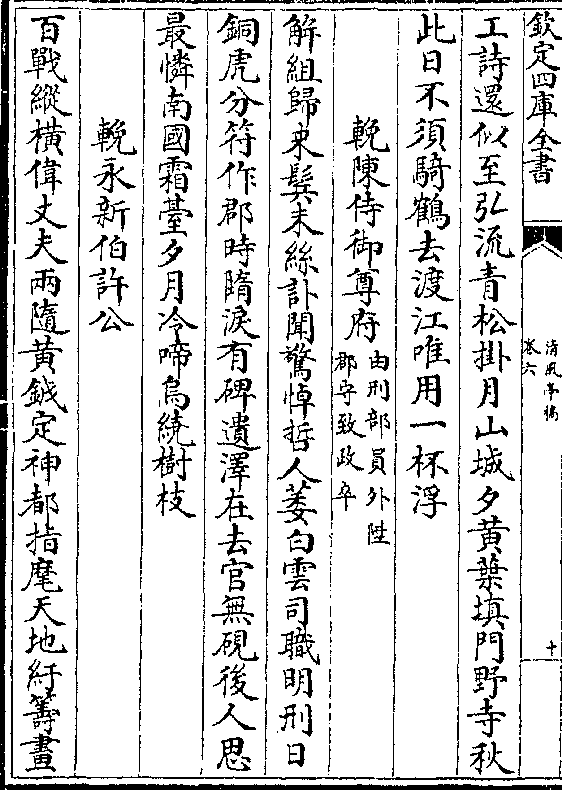 欽定四庫全書
清風亭稿
卷六
十
工詩還似至弘流青松掛月山城夕黄葉填門野寺秋
此日不須騎鶴去渡江唯用一杯浮
輓陳侍御尊府
由刑部員外陞
郡守致政卒
解組歸來髩未絲訃聞驚悼哲人萎白雲司職明刑日
銅虎分符作郡時隋淚有碑遺澤在去官無硯後人思
最憐南國霜臺夕月冷啼烏繞樹枝
輓永新伯許公
百戰縱橫偉丈夫兩隨黄鉞定神都指麾天地紆籌畫